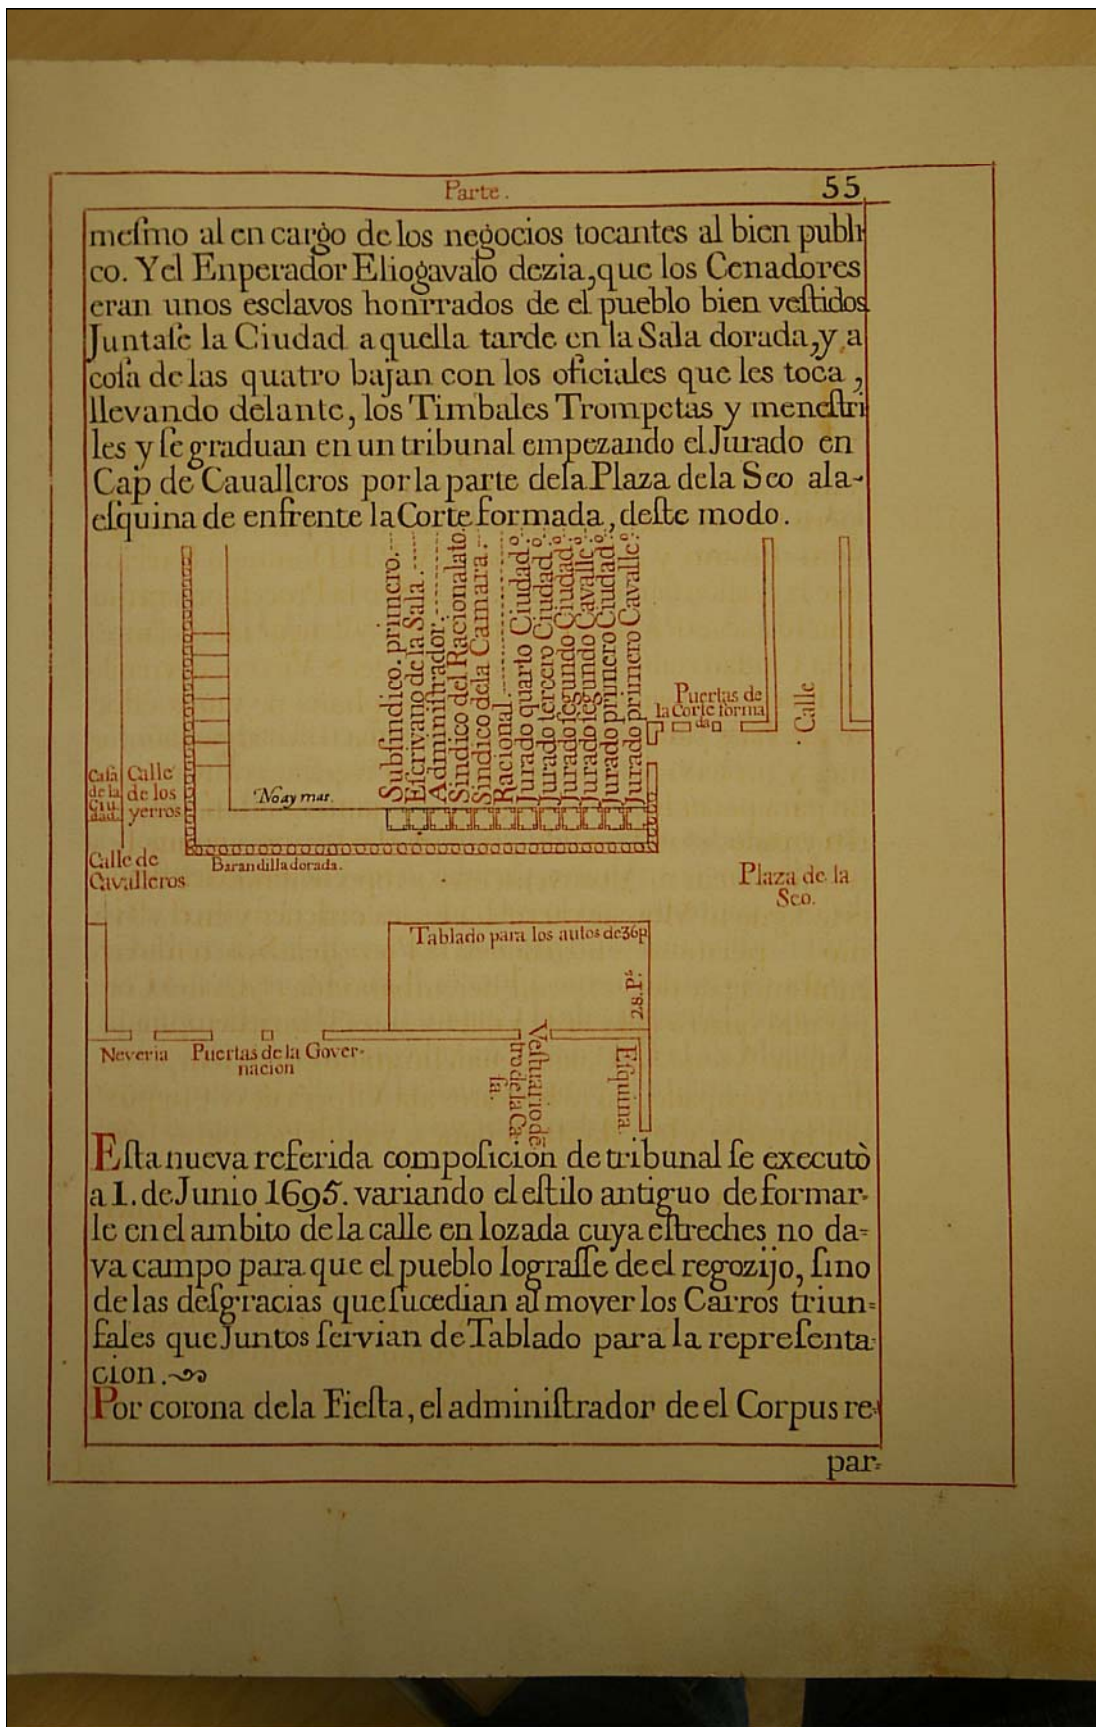 Parte.
55
meſmo al en cargo de los negocios tocantes al bien publi
co. Y el Enperador Eliogavalo dezia, que los Cenadores
eran unos esclavos honrrados de el pueblo bien veſtidos
Juntaſe la Ciudad aquella tarde en la Sala dorada, y a
coſa de las quatro bajan con los oficiales que les toca,
llevando delante, los Timbales Trompetas y meneſtri
les y ſe graduan en un tribunal empezando el Jurado en
Cap de Cauallcros por la parte dela Plaza dela Seo ala-
eſquina de enfrente la Corte formada, deſte modo.
Subſindico. primero.
Eſcrivano de la Sala.
Adminiſtrador.
Sindico del Racionalato
Sindico dela Camara.
Racional
Jurado quarto Ciudad.º
Jurado tercero Ciudad.º
Jurado ſegundo Ciudad.º
Jurado ſegundo Cavalle.º
Jurado primero Ciudad.º
Jurado primero Cavalle.º
Puertas de
la Corte forma
da
Calle
Caſa
de la
Ciu
dad.
Calle
de los
yerros
No ay mas.
Calle de
Cavalleros
Barandilla dorada.
Plaza de la
Seo.
Tablado para los autos de 36p
28.Pˢ
Neveria
Puertas de la Gover-
nacion
Veſtuario dē-
tro de la Ca
ſa.
Eſquina.
Eſta nueva referida compoſicion de tribunal ſe executò
a 1. de Junio 1695. variando el eſtilo antiguo de formar-
le en el ambito de la calle en lozada cuya eſtreches no da=
va campo para que el pueblo lograſſe de el regozijo, ſino
de las deſgracias que ſucedian al mover los Carros triun=
fales que Juntos ſervian de Tablado para la repreſenta=
cion.
Por corona dela Fieſta, el adminiſtrador de el Corpus re=
par=